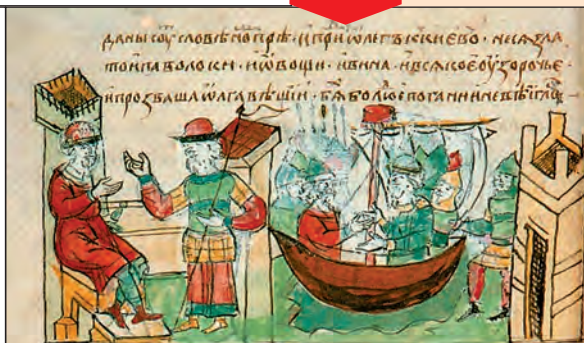 даны соу словѣно прѣ · и при ѡлегъ к киевꋋ · неса зла
то и паволоки · и ѡвощи · и вина · и всѧкое оузорочье ·
и прозваша ѡлга вѣщии · бѧ бо погани и невѣигла